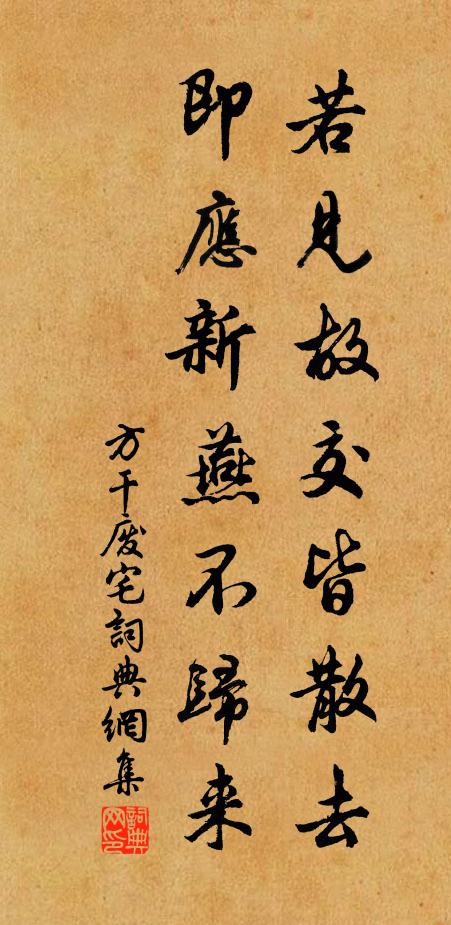 若見故交皆散去
即應新燕不歸来
方干废宅詞典網集
詞典网印